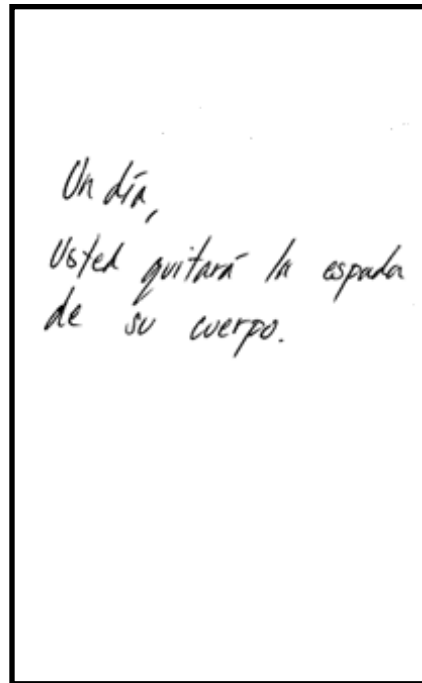 Un día,
Usted quitará la espada
de su cuerpo.